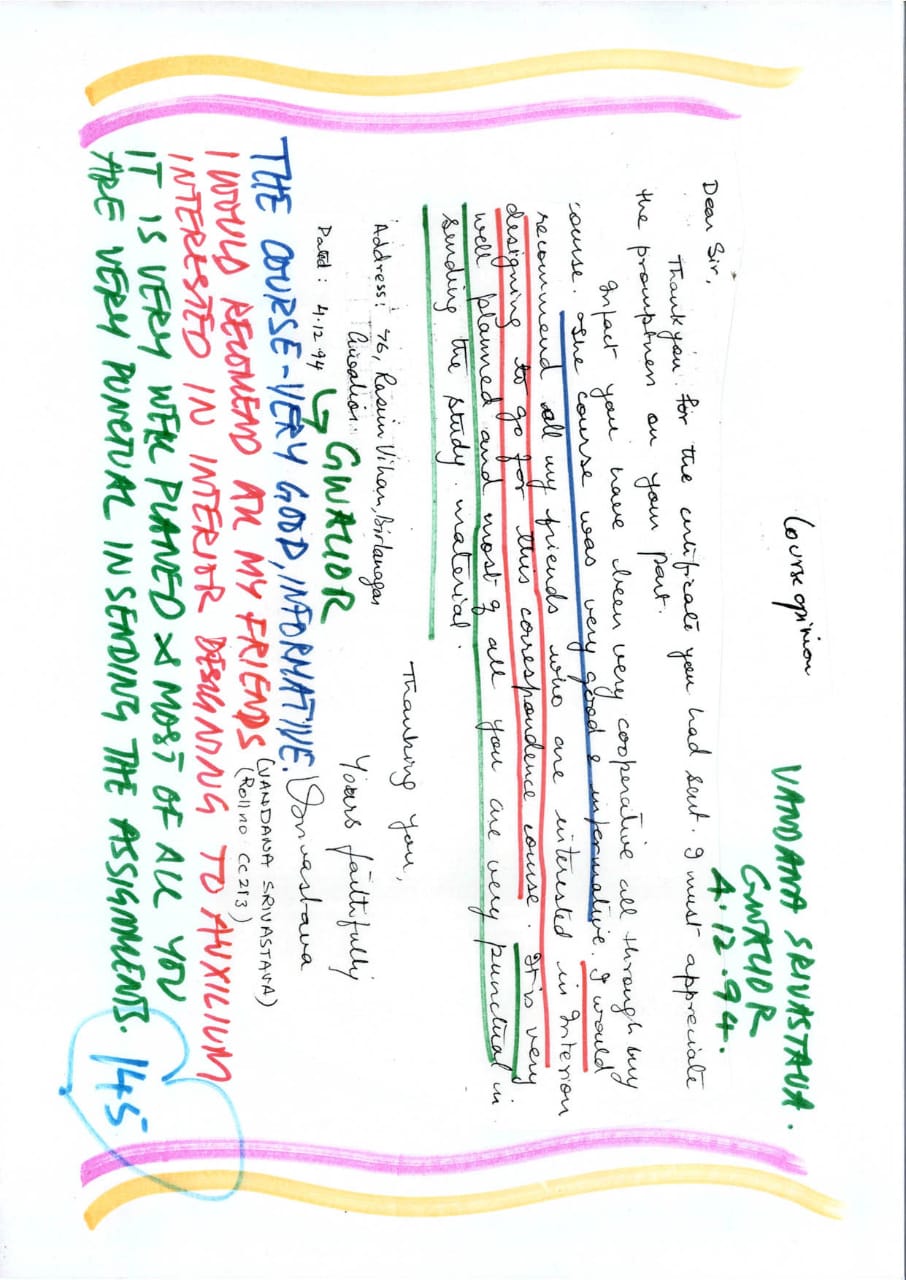 Course opinion
VANDANA SRIVASTAVA.
GWALIOR
4.12.94.
Dear Sir,
Thankyou for the certificate you had sent. I must appreciate
the promptness on your part.
Infact you have been very cooperative all through my
course. The course was very good & informative. I would
recommend all my friends who are interested in Interior
designing to go for this correspondence course. It is very
well planned and most of all you are very punctual in
sending the study material.
Thanking you,
Yours faithfully
Address: 76, Vihar, Birlanagar
Gwalior.
Dated: 4.12.94
GWALIOR
Srivastava
(VANDANA SRIVASTAVA)
(Roll no CC213)
THE COURSE-VERY GOOD, INFORMATIVE.
I WOULD RECOMEND ALL MY FRIENDS
INTERESTED IN INTERIOR DESIGNING TO AUXILIUM
IT IS VERY WELL PLANED & MOST OF ALL YOU
ARE VERY PUNCTUAL IN SENDING THE ASSIGNMENTS.
145